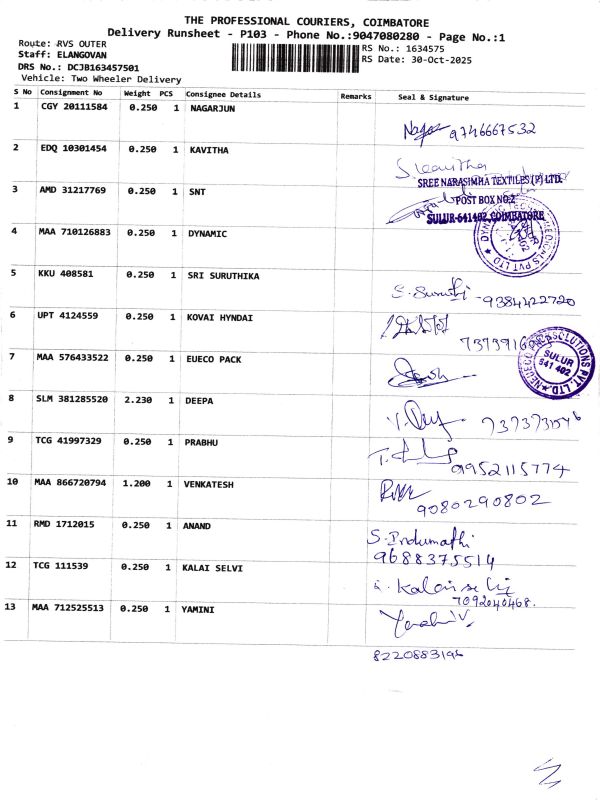 THE PROFESSIONAL COURIERS, COIMBATORE
Delivery Runsheet - P103 - Phone No.:9047080280 - Page No.:1
Route: RVS OUTER
RS No.: 1634575
Staff: ELANGOVAN
RS Date: 30-Oct-2025
DRS No.: DCJB163457501
Vehicle: Two Wheeler Delivery
S No Consignment No Weight PCS Consignee Details Remarks Seal & Signature
1 CGY 20111584 0.250 1 NAGARJUN
9746667532
2 EDQ 10301454 0.250 1 KAVITHA
SREE NARASIMHA TEXTILES (P) LTD.
3 AMD 31217769 0.250 1 SNT
POST BOX NO.2
SULUR-641402, COIMBATORE
4 MAA 710126883 0.250 1 DYNAMIC
5 KKU 408581 0.250 1 SRI SURUTHIKA
9384422720
6 UPT 4124559 0.250 1 KOVAI HYNDAI
SULUR
641 402
7 MAA 576433522 0.250 1 EUECO PACK
8 SLM 381285520 2.230 1 DEEPA
9 TCG 41997329 0.250 1 PRABHU
9952115774
10 MAA 866720794 1.200 1 VENKATESH
9080290802
11 RMD 1712015 0.250 1 ANAND
S. Indumathi
9688375514
12 TCG 111539 0.250 1 KALAI SELVI
7092040468.
13 MAA 712525513 0.250 1 YAMINI